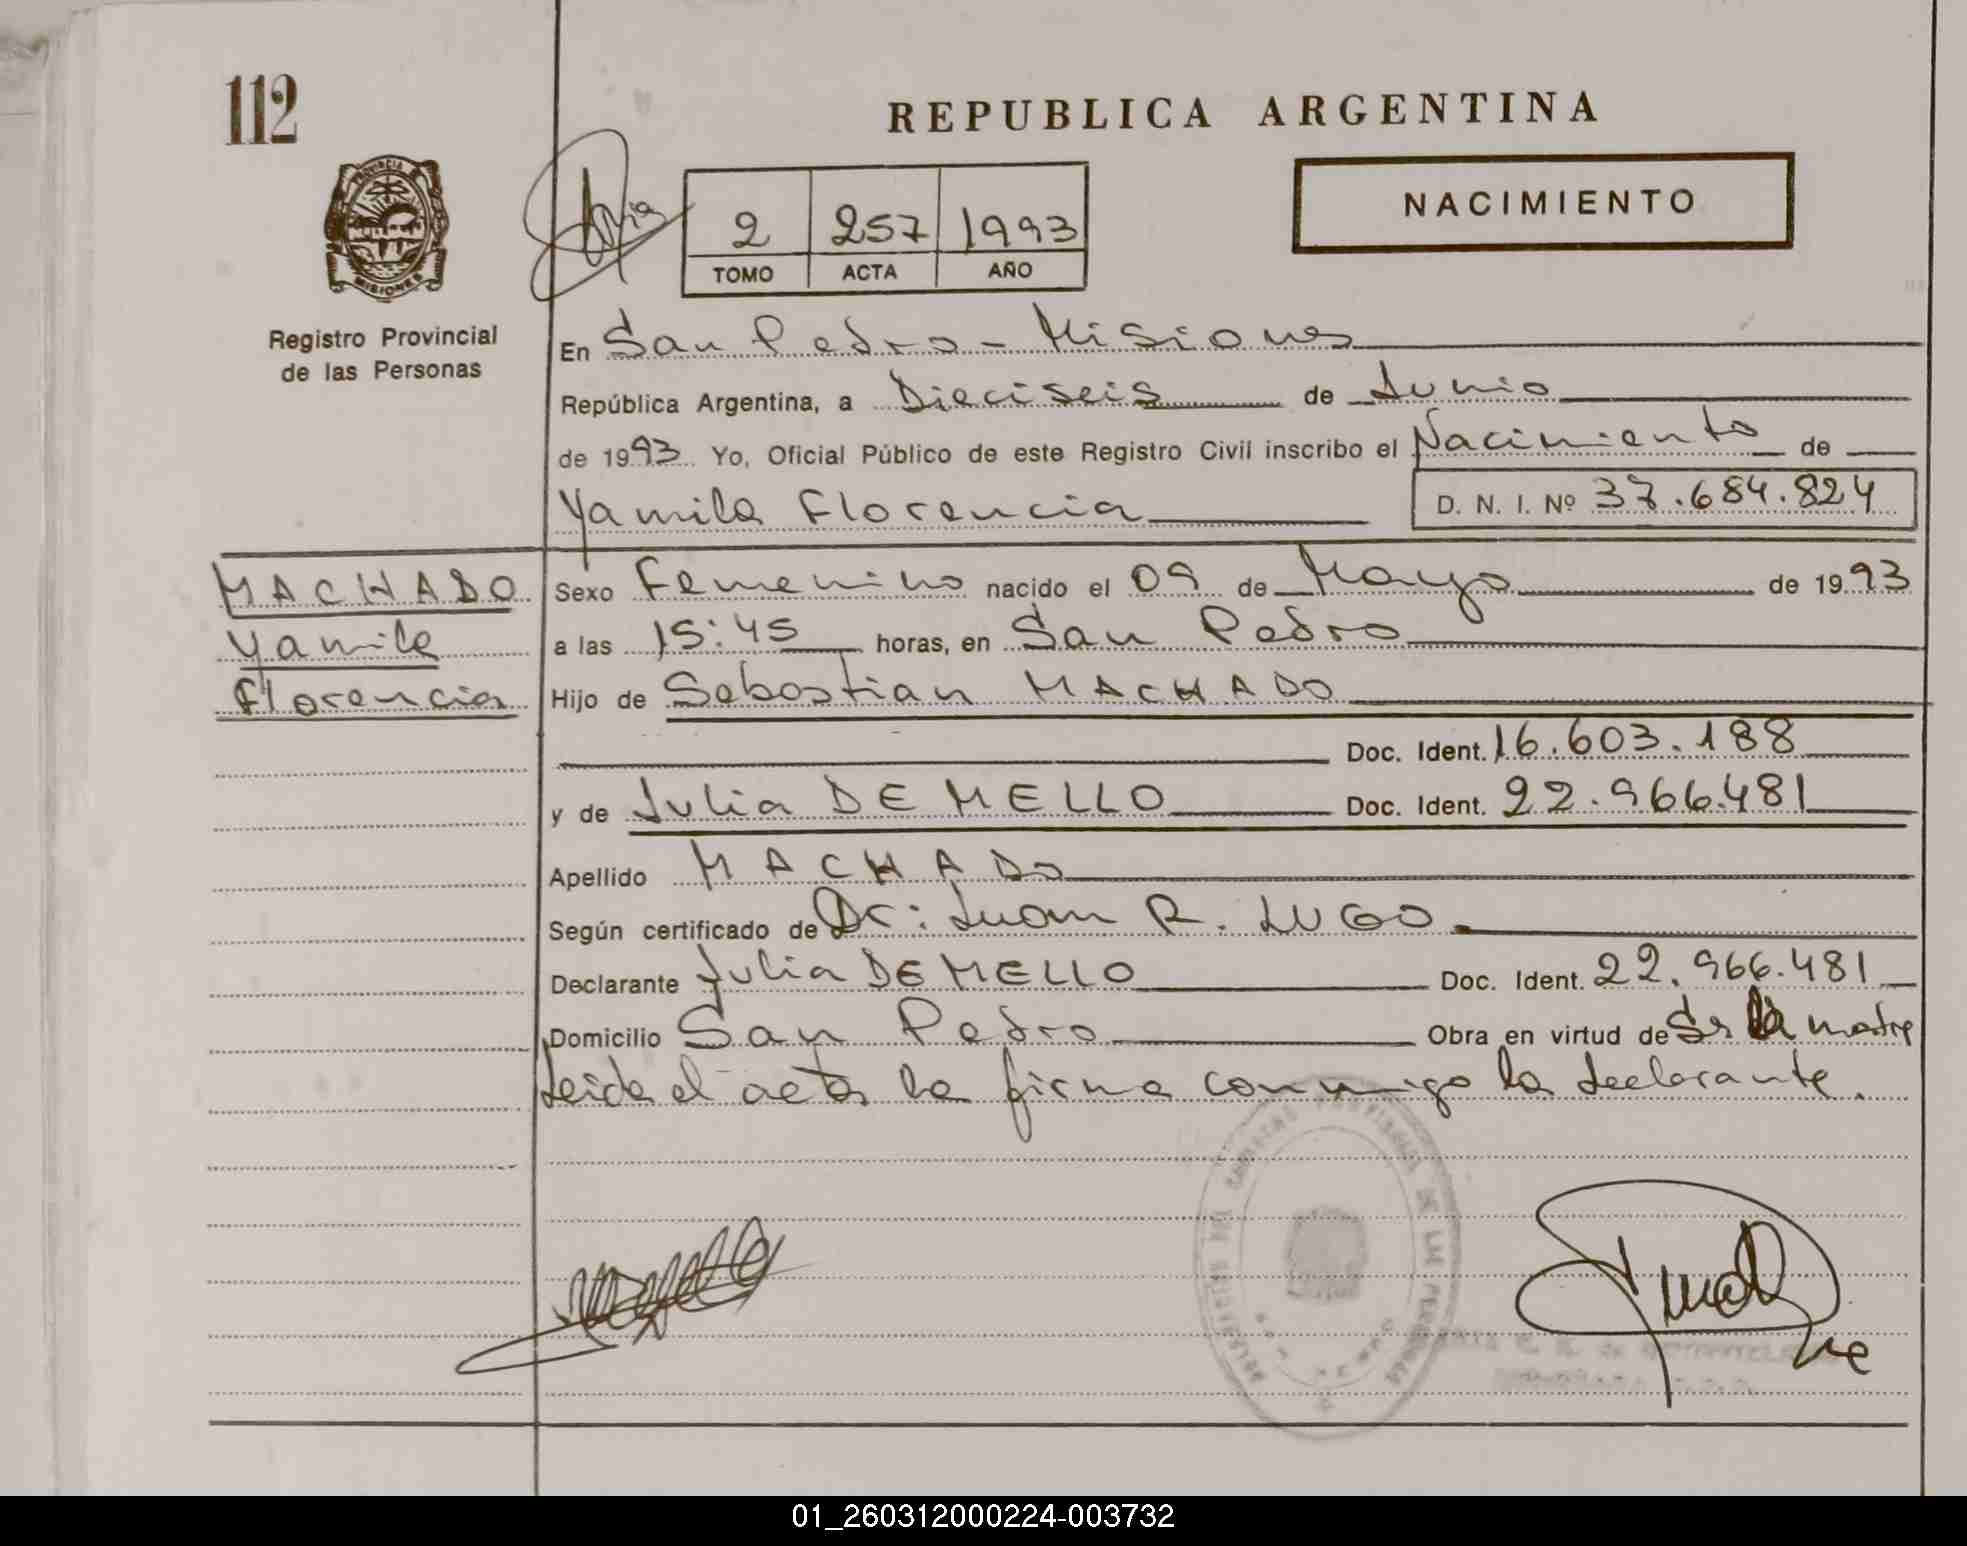 112
REPUBLICA ARGENTINA
NACIMIENTO
2 257 1993
TOMO ACTA AÑO
PROVINCIA DE
MISIONES
Registro Provincial
de las Personas
En San Pedro - Misiones
República Argentina, a Dieciseis de Junio
de 1993 Yo, Oficial Público de este Registro Civil inscribo el Nacimiento de
Yamila Florencia D. N. I. Nº 37.684.824
MACHADO
Yamila
Florencia
Sexo Femenino nacido el 09 de Mayo de 1993
a las 15:45 horas, en San Pedro
Hijo de Sebastian MACHADO
Doc. Ident. 16.603.188
y de Julia DE MELLO Doc. Ident. 22.966.481
Apellido MACHADO
Según certificado de Dr: Juan R. LUGO
Declarante Julia DE MELLO Doc. Ident. 22.966.481
Domicilio San Pedro Obra en virtud de Sr la madre
Leida el acta la firma conmigo la declarante.
PROVINCIAL DE LAS PERSONAS
01_260312000224-003732